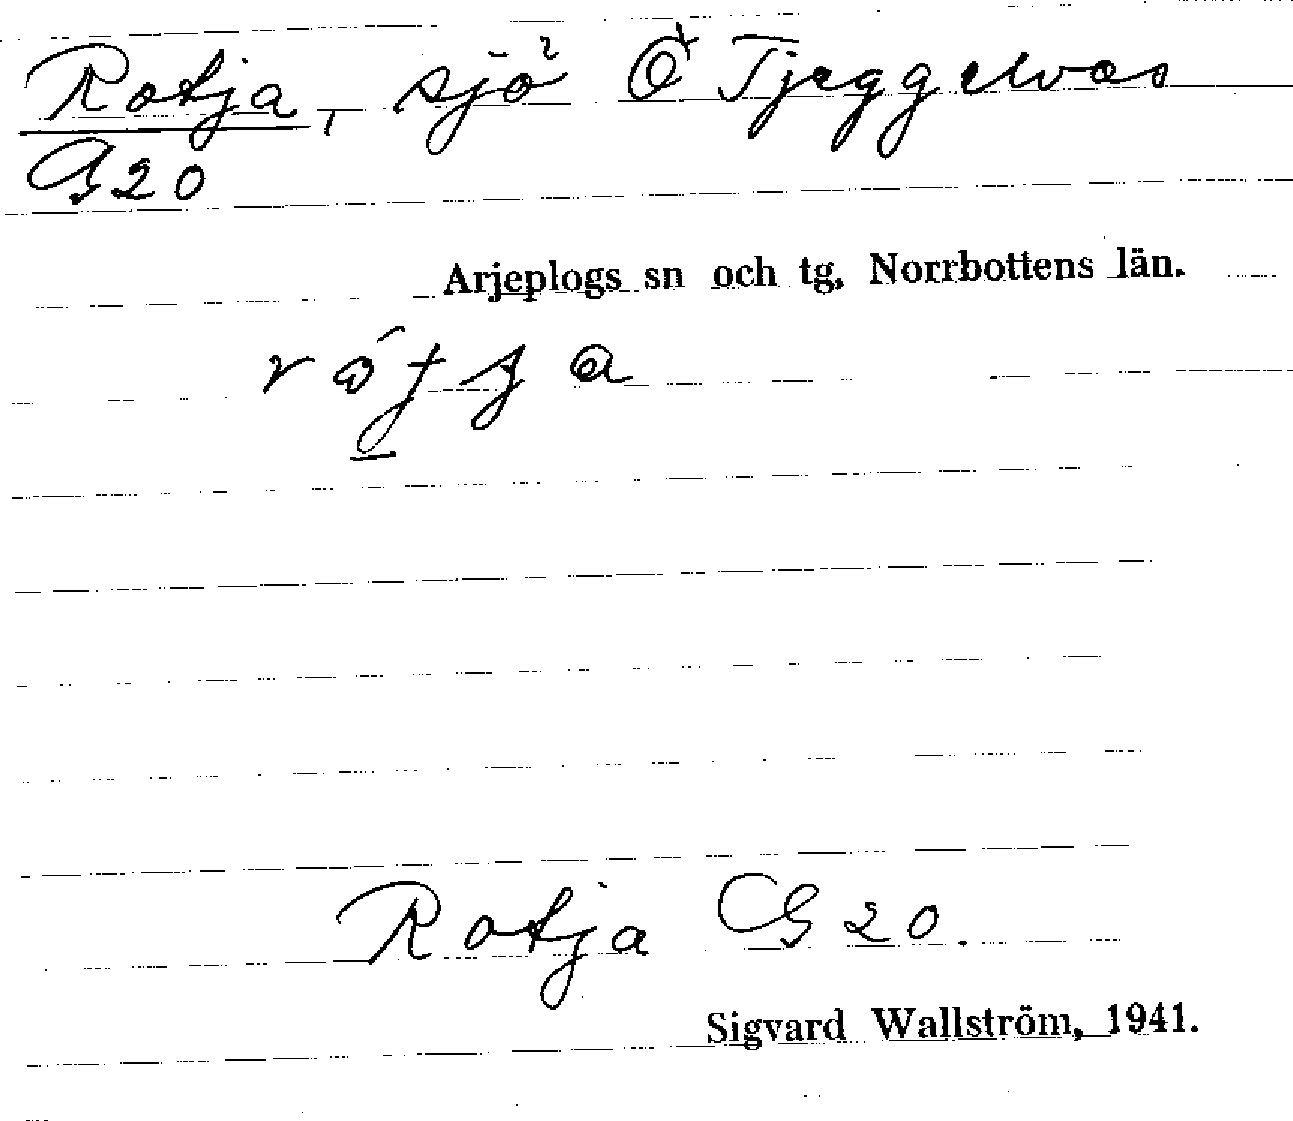 Rotja, sjö Ö Tjeggelvas
G20
Arjeplogs sn och tg, Norrbottens län.
Rotja G20.
Sigvard Wallström, 1941.